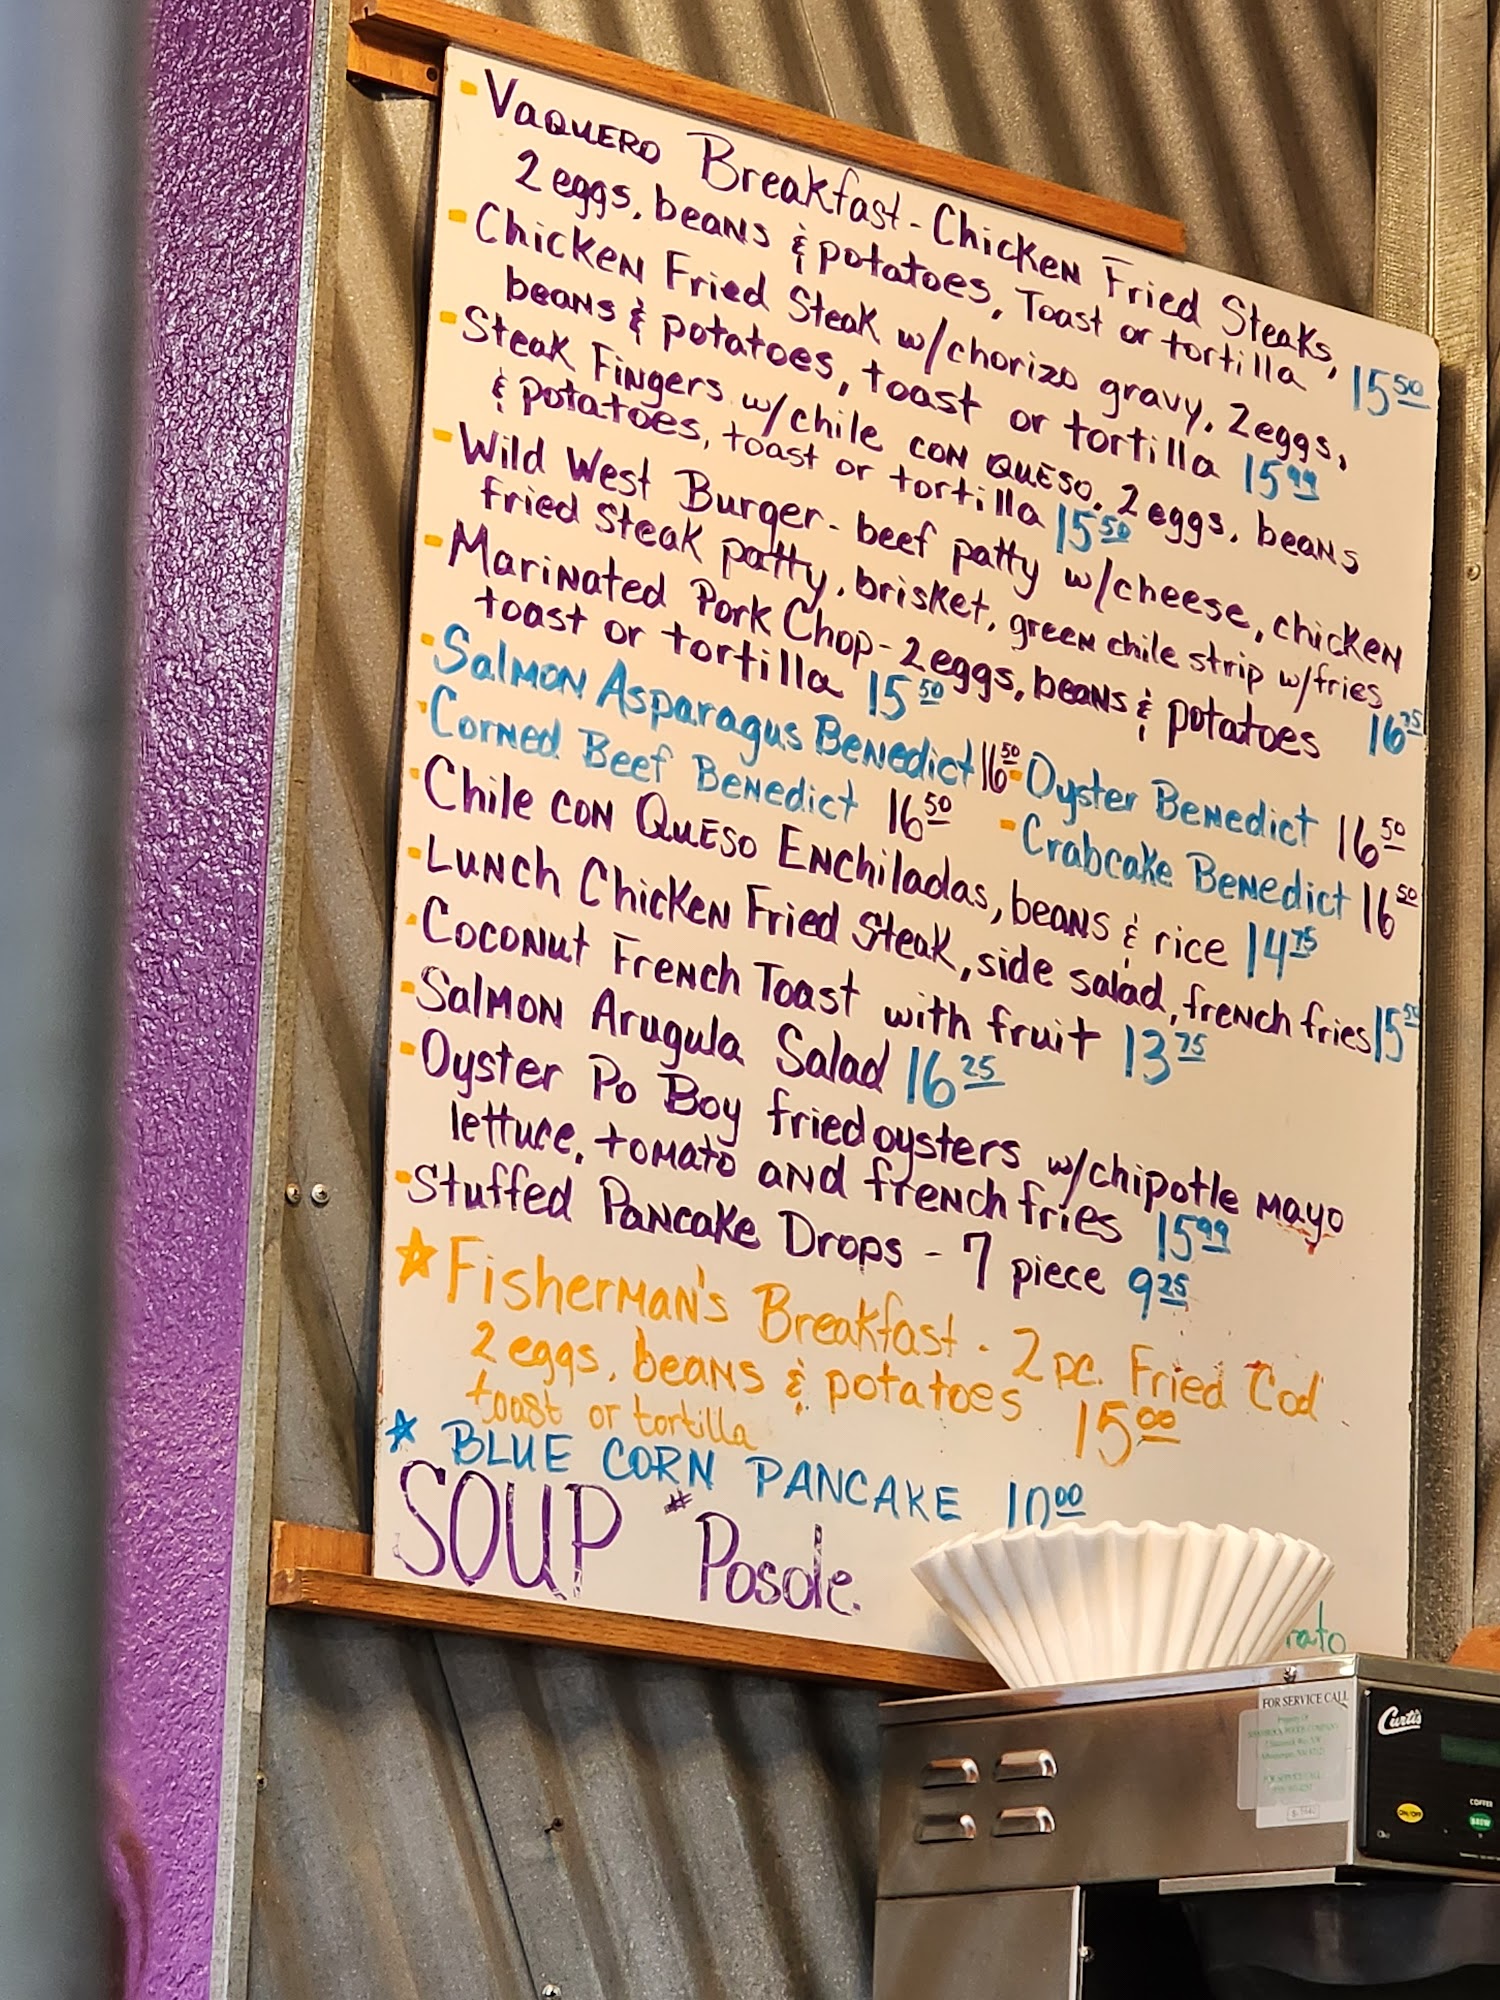 - Vaquero Breakfast - Chicken Fried Steaks,
2 eggs, beans & potatoes, Toast or tortilla 15 50
- Chicken Fried Steak w/chorizo gravy, 2 eggs,
beans & potatoes, toast or tortilla 15 99
- Steak Fingers w/chile con queso, 2 eggs, beans
& potatoes, toast or tortilla 15 50
- Wild West Burger - beef patty w/cheese, chicken
fried steak patty, brisket, green chile strip w/fries 16 75
- Marinated Pork Chop - 2 eggs, beans & potatoes
toast or tortilla 15 50
- Salmon Asparagus Benedict 16 50 - Oyster Benedict 16 50
- Corned Beef Benedict 16 50 - Crabcake Benedict 16 50
- Chile con Queso Enchiladas, beans & rice 14 75
- Lunch Chicken Fried Steak, side salad, french fries 15 50
- Coconut French Toast with fruit 13 75
- Salmon Arugula Salad 16 25
- Oyster Po Boy fried oysters w/chipotle mayo
lettuce, tomato and french fries 15 99
- Stuffed Pancake Drops - 7 piece 9 25
☆ Fisherman's Breakfast - 2 pc. Fried Cod
2 eggs, beans & potatoes 15 00
toast or tortilla
☆ BLUE CORN PANCAKE 10 00
SOUP * Posole.
FOR SERVICE CALL
Curtis
ON/OFF
COFFEE
BREW